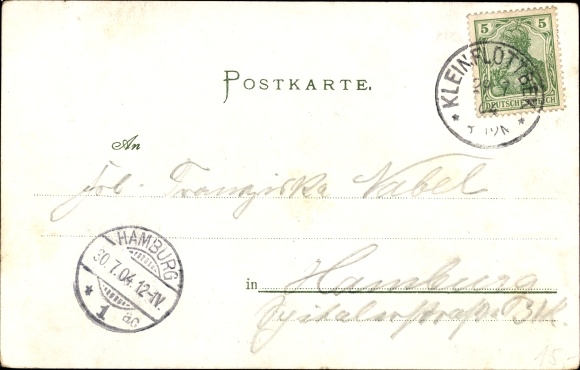 5 5
DEUTSCHES REICH
* KLEIN FLOTTBEK *
POSTKARTE.
An
Frl. Franziska Nabel
HAMBURG
30.7.04.12-1N.
* 1
in Hamburg
Spitalerstraße
15.-